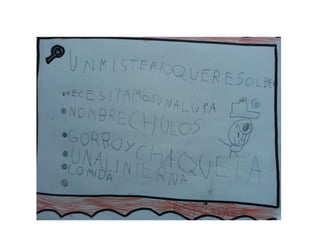 UNMISTERIOQUERESOLBER
NECESITAMOSUNALUPA
NOMBRECHULOS
GORROYCHAQUETA
UNALINTERNA
COMIDA